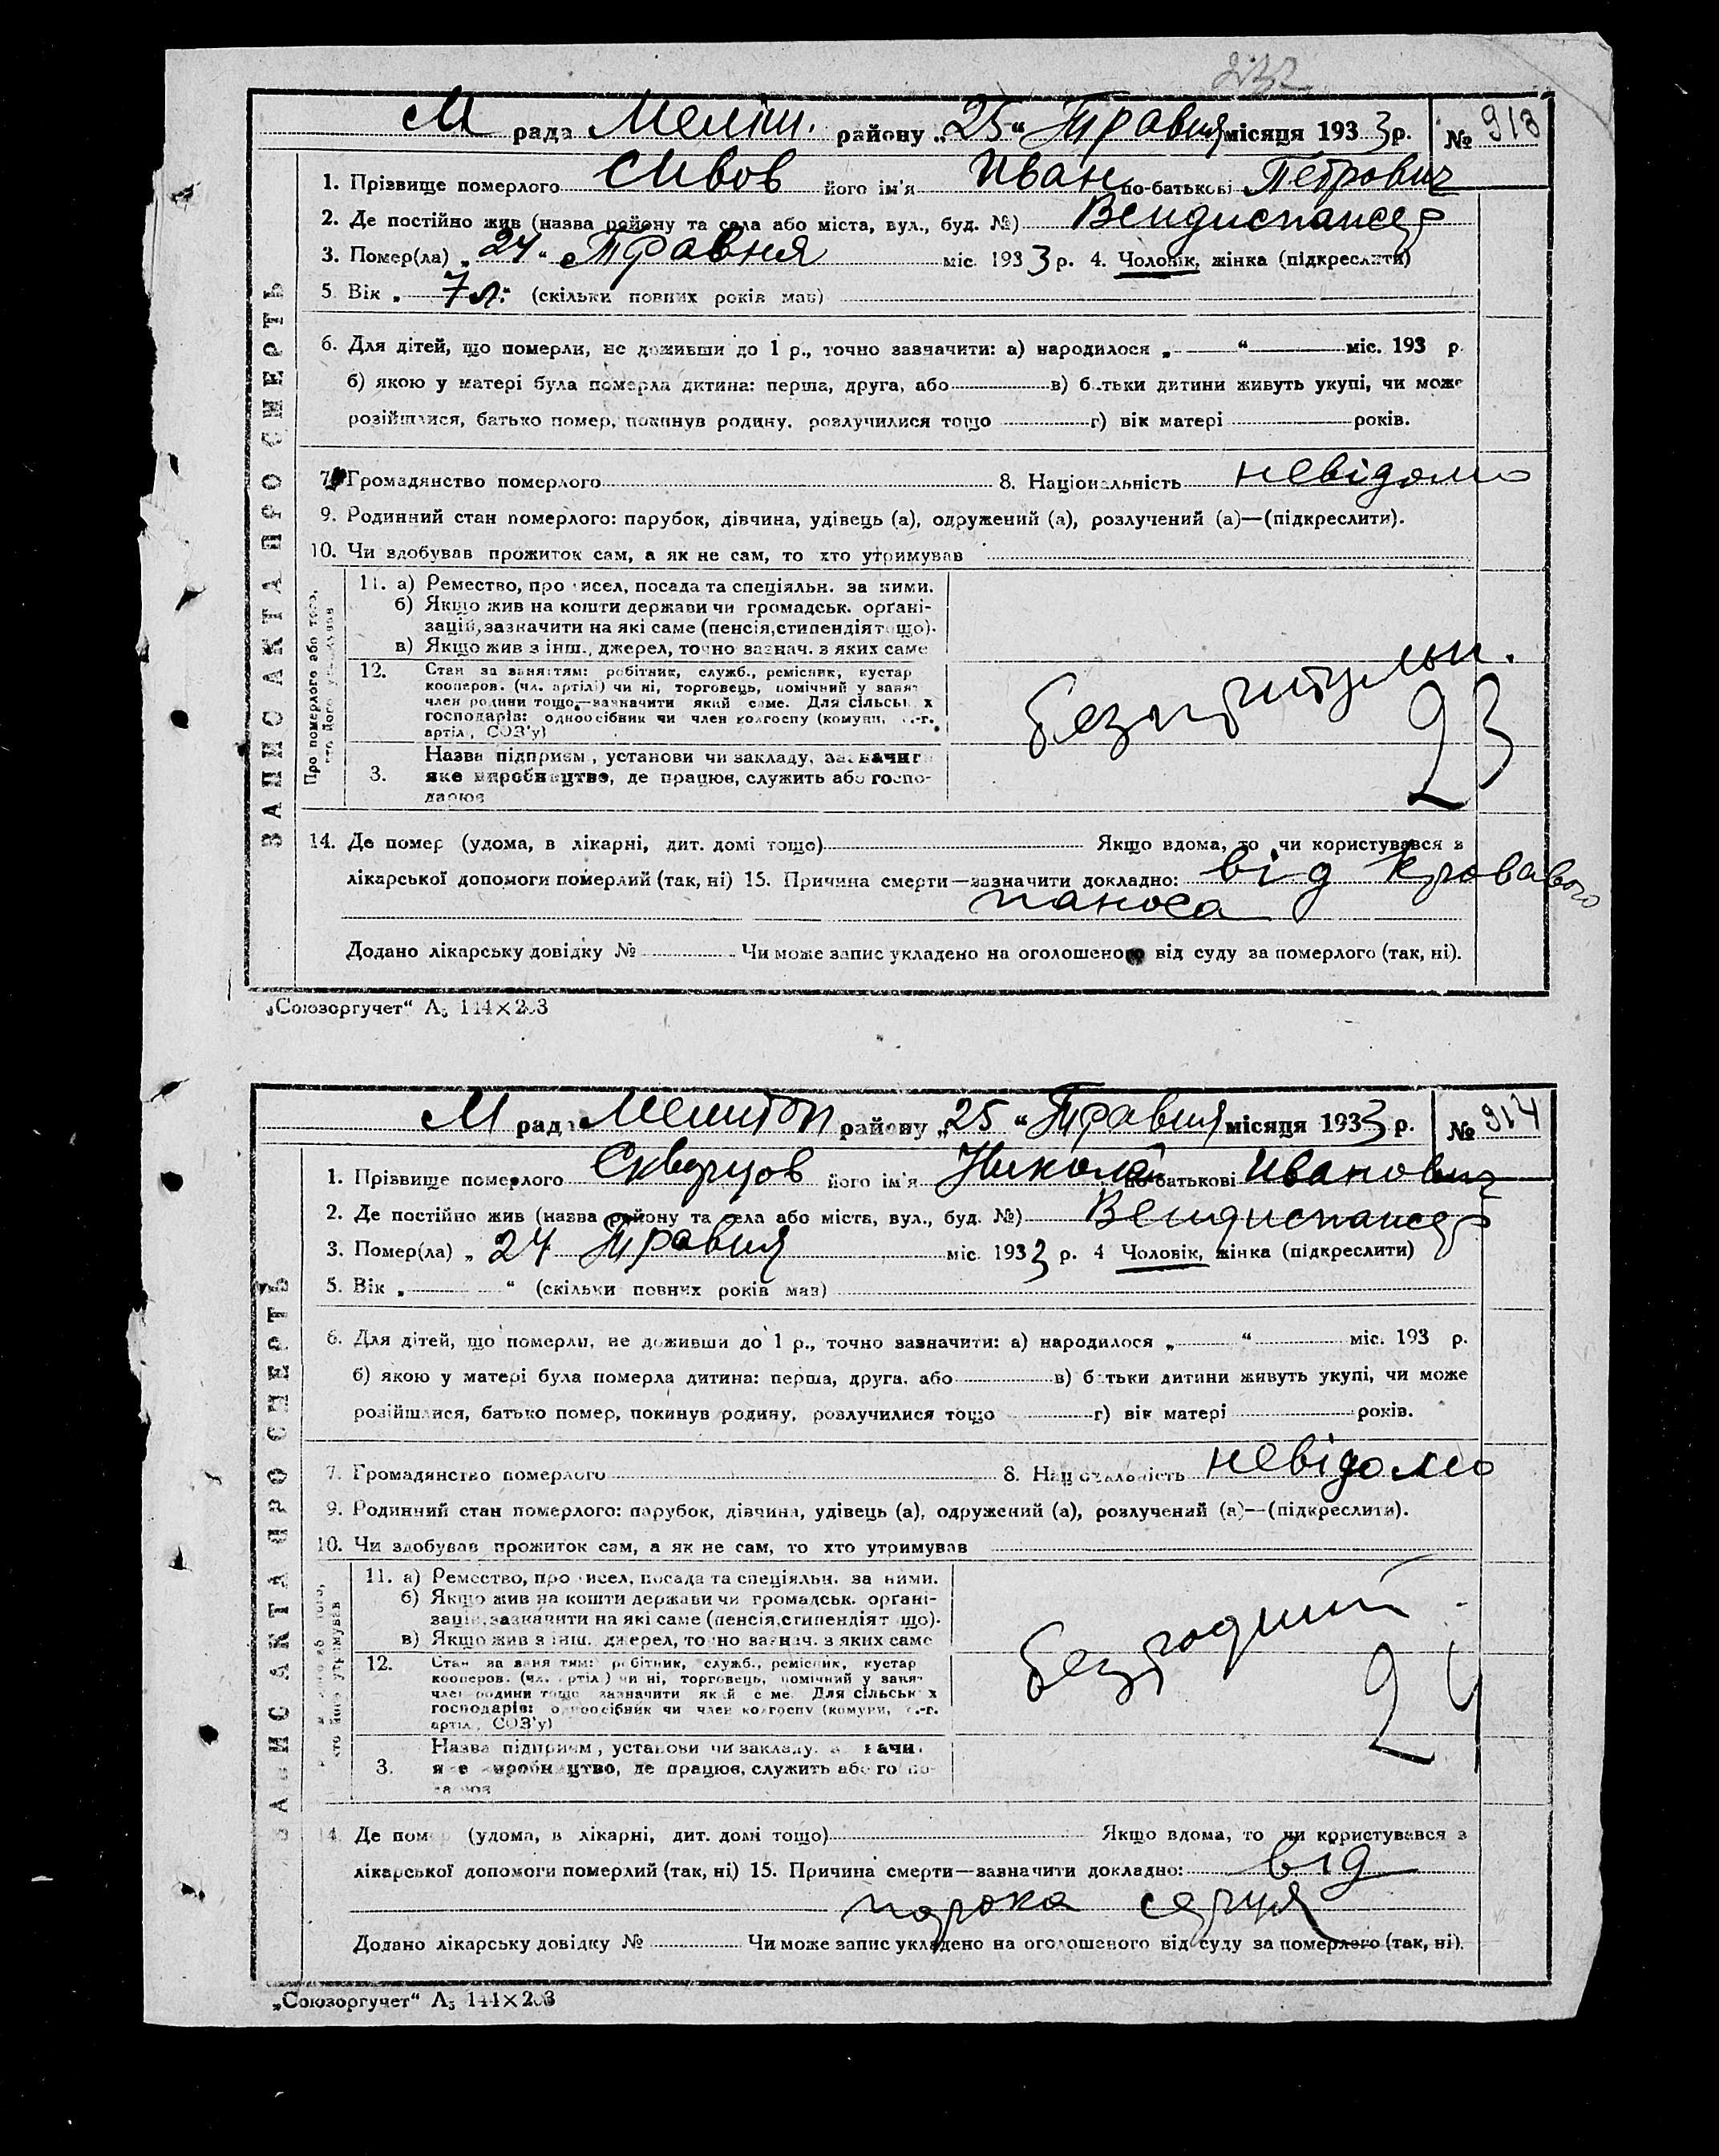 М рада Меліт. району „25“ Травня місяця 1933 р. № 913
1. Прізвище померлого Сивов його ім'я Иван по-батькові Петрович
2. Де постійно жив (назва району та села або міста, вул., буд. №) Вендиспансер
3. Помер(ла) „24“ Травня міс. 1933 р. 4. Чоловік, жінка (підкреслити)
5. Вік „7 л.“ (скільки повних років мав)
6. Для дітей, що померли, не доживши до 1 р., точно зазначити: а) народилося „ “ міс. 193 р.
б) якою у матері була померла дитина: перша, друга, або в) батьки дитини живуть укупі, чи може
розійшлися, батько помер, покинув родину, розлучилися тощо г) вік матері років.
7. Громадянство померлого 8. Національність невідомо
9. Родинний стан померлого: парубок, дівчина, удівець (а), одружений (а), розлучений (а)—(підкреслити).
10. Чи здобував прожиток сам, а як не сам, то хто утримував
ЗАПИС АКТА ПРО СМЕРТЬ
Про померлого або того, хто його утримував
11. а) Ремество, промисел, посада та спеціяльн. за ними.
б) Якщо жив на кошти держави чи громадськ. орґані-
зацій, зазначити на які саме (пенсія, стипендія тощо).
в) Якщо жив з інш., джерел, точно зазнач. з яких саме
12. Стан за заняттям: робітник, служб., ремісник, кустар
кооперов. (чл. артілі) чи ні, торговець, помічний у занят.
член родини тощо—зазначити який саме. Для сільськ х
господарів: одноосібник чи член колгоспу (комуни, с.-г.
артіл., СОЗ'у)
23
3. Назва підприєм., установи чи закладу, зазначит
яке виробництво, де працює, служить або госпо-
дарює
14. Де помер (удома, в лікарні, дит. домі тощо) Якщо вдома, то чи користувався з
лікарської допомоги померлий (так, ні) 15. Причина смерти—зазначити докладно: від кровавого
поноса
Додано лікарську довідку № Чи може запис укладено на оголошеного від суду за померлого (так, ні).
„Союзоргучет“ А₅ 144×203
М рада Мелитоп району „25“ Травня місяця 1933 р. № 914
1. Прізвище померлого Скворцов його ім'я Николай по-батькові Иванович
2. Де постійно жив (назва району та села або міста, вул., буд. №) Вендиспансер
3. Помер(ла) „24 Травня міс. 1933 р. 4 Чоловік, жінка (підкреслити)
5. Вік „ “ (скільки повних років мав)
6. Для дітей, що померли, не доживши до 1 р., точно зазначити: а) народилося „ “ міс. 193 р.
б) якою у матері була померла дитина: перша, друга, або в) батьки дитини живуть укупі, чи може
розійшлися, батько помер, покинув родину, розлучилися тощо г) вік матері років.
7. Громадянство померлого 8. Національність невідомо
9. Родинний стан померлого: парубок, дівчина, удівець (а), одружений (а), розлучений (а)—(підкреслити).
10. Чи здобував прожиток сам, а як не сам, то хто утримував
ЗАПИС АКТА ПРО СМЕРТЬ
11. а) Ремество, промисел, посада та спеціяльн. за ними.
б) Якщо жив на кошти держави чи громадськ. орґані-
зацій, зазначити на які саме (пенсія, стипендія тощо).
в) Якщо жив з інш. джерел, точно зазнач. з яких саме
безродний
12. Стан за заняттям: робітник, служб., ремісник, кустар
кооперов. (чл. артіл.) чи ні, торговець, помічний у занят.
член родини тощо зазначити який саме. Для сільськ х
господарів: одноосібник чи член колгоспу (комуни, с.-г.
артіл., СОЗ'у)
24
3. Назва підприєм., установи чи закладу, зазначи
яке виробництво, де працює, служить або госпо-
дарює
14. Де помер (удома, в лікарні, дит. домі тощо) Якщо вдома, то чи користувався з
лікарської допомоги померлий (так, ні) 15. Причина смерти—зазначити докладно: від
порока серця
Додано лікарську довідку № Чи може запис укладено на оголошеного від суду за померлого (так, ні).
„Союзоргучет“ А₅ 144×203